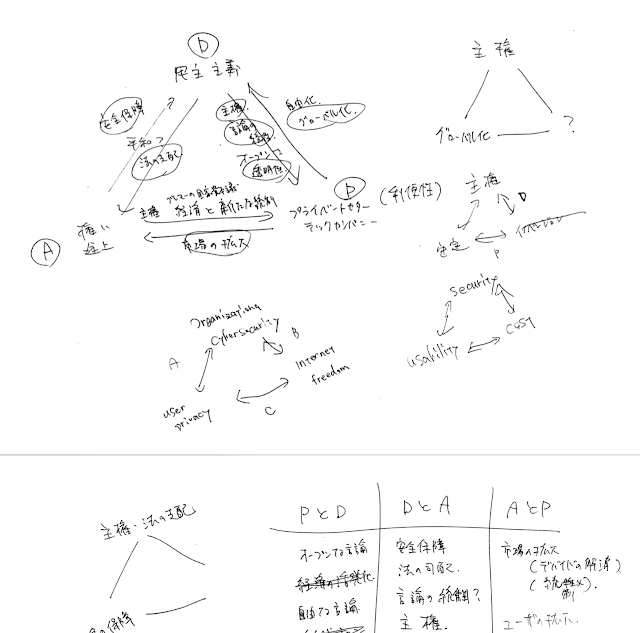 D
民主主義
安全保障
平和?
法の支配
主権
言論の
統制
オープンで
透明性
自由化
グローバル化
A
強い
途上
主権 経済と新たな統制
市場の
P
プライベートセクター
テックカンパニー
(利便性)
主権
グローバル化
?
主権
D
安定
P
イノベーション
security
usability
cost
Organizational
cybersecurity
A
B
user
privacy
C
internet
freedom
主権・法の支配
の保障
PとD
DとA
AとP
オープンな言論
経済の活発化
自由な言論
安全保障
法の支配
言論の統制?
主権
市場
(デバイドの解消)
ユーザの